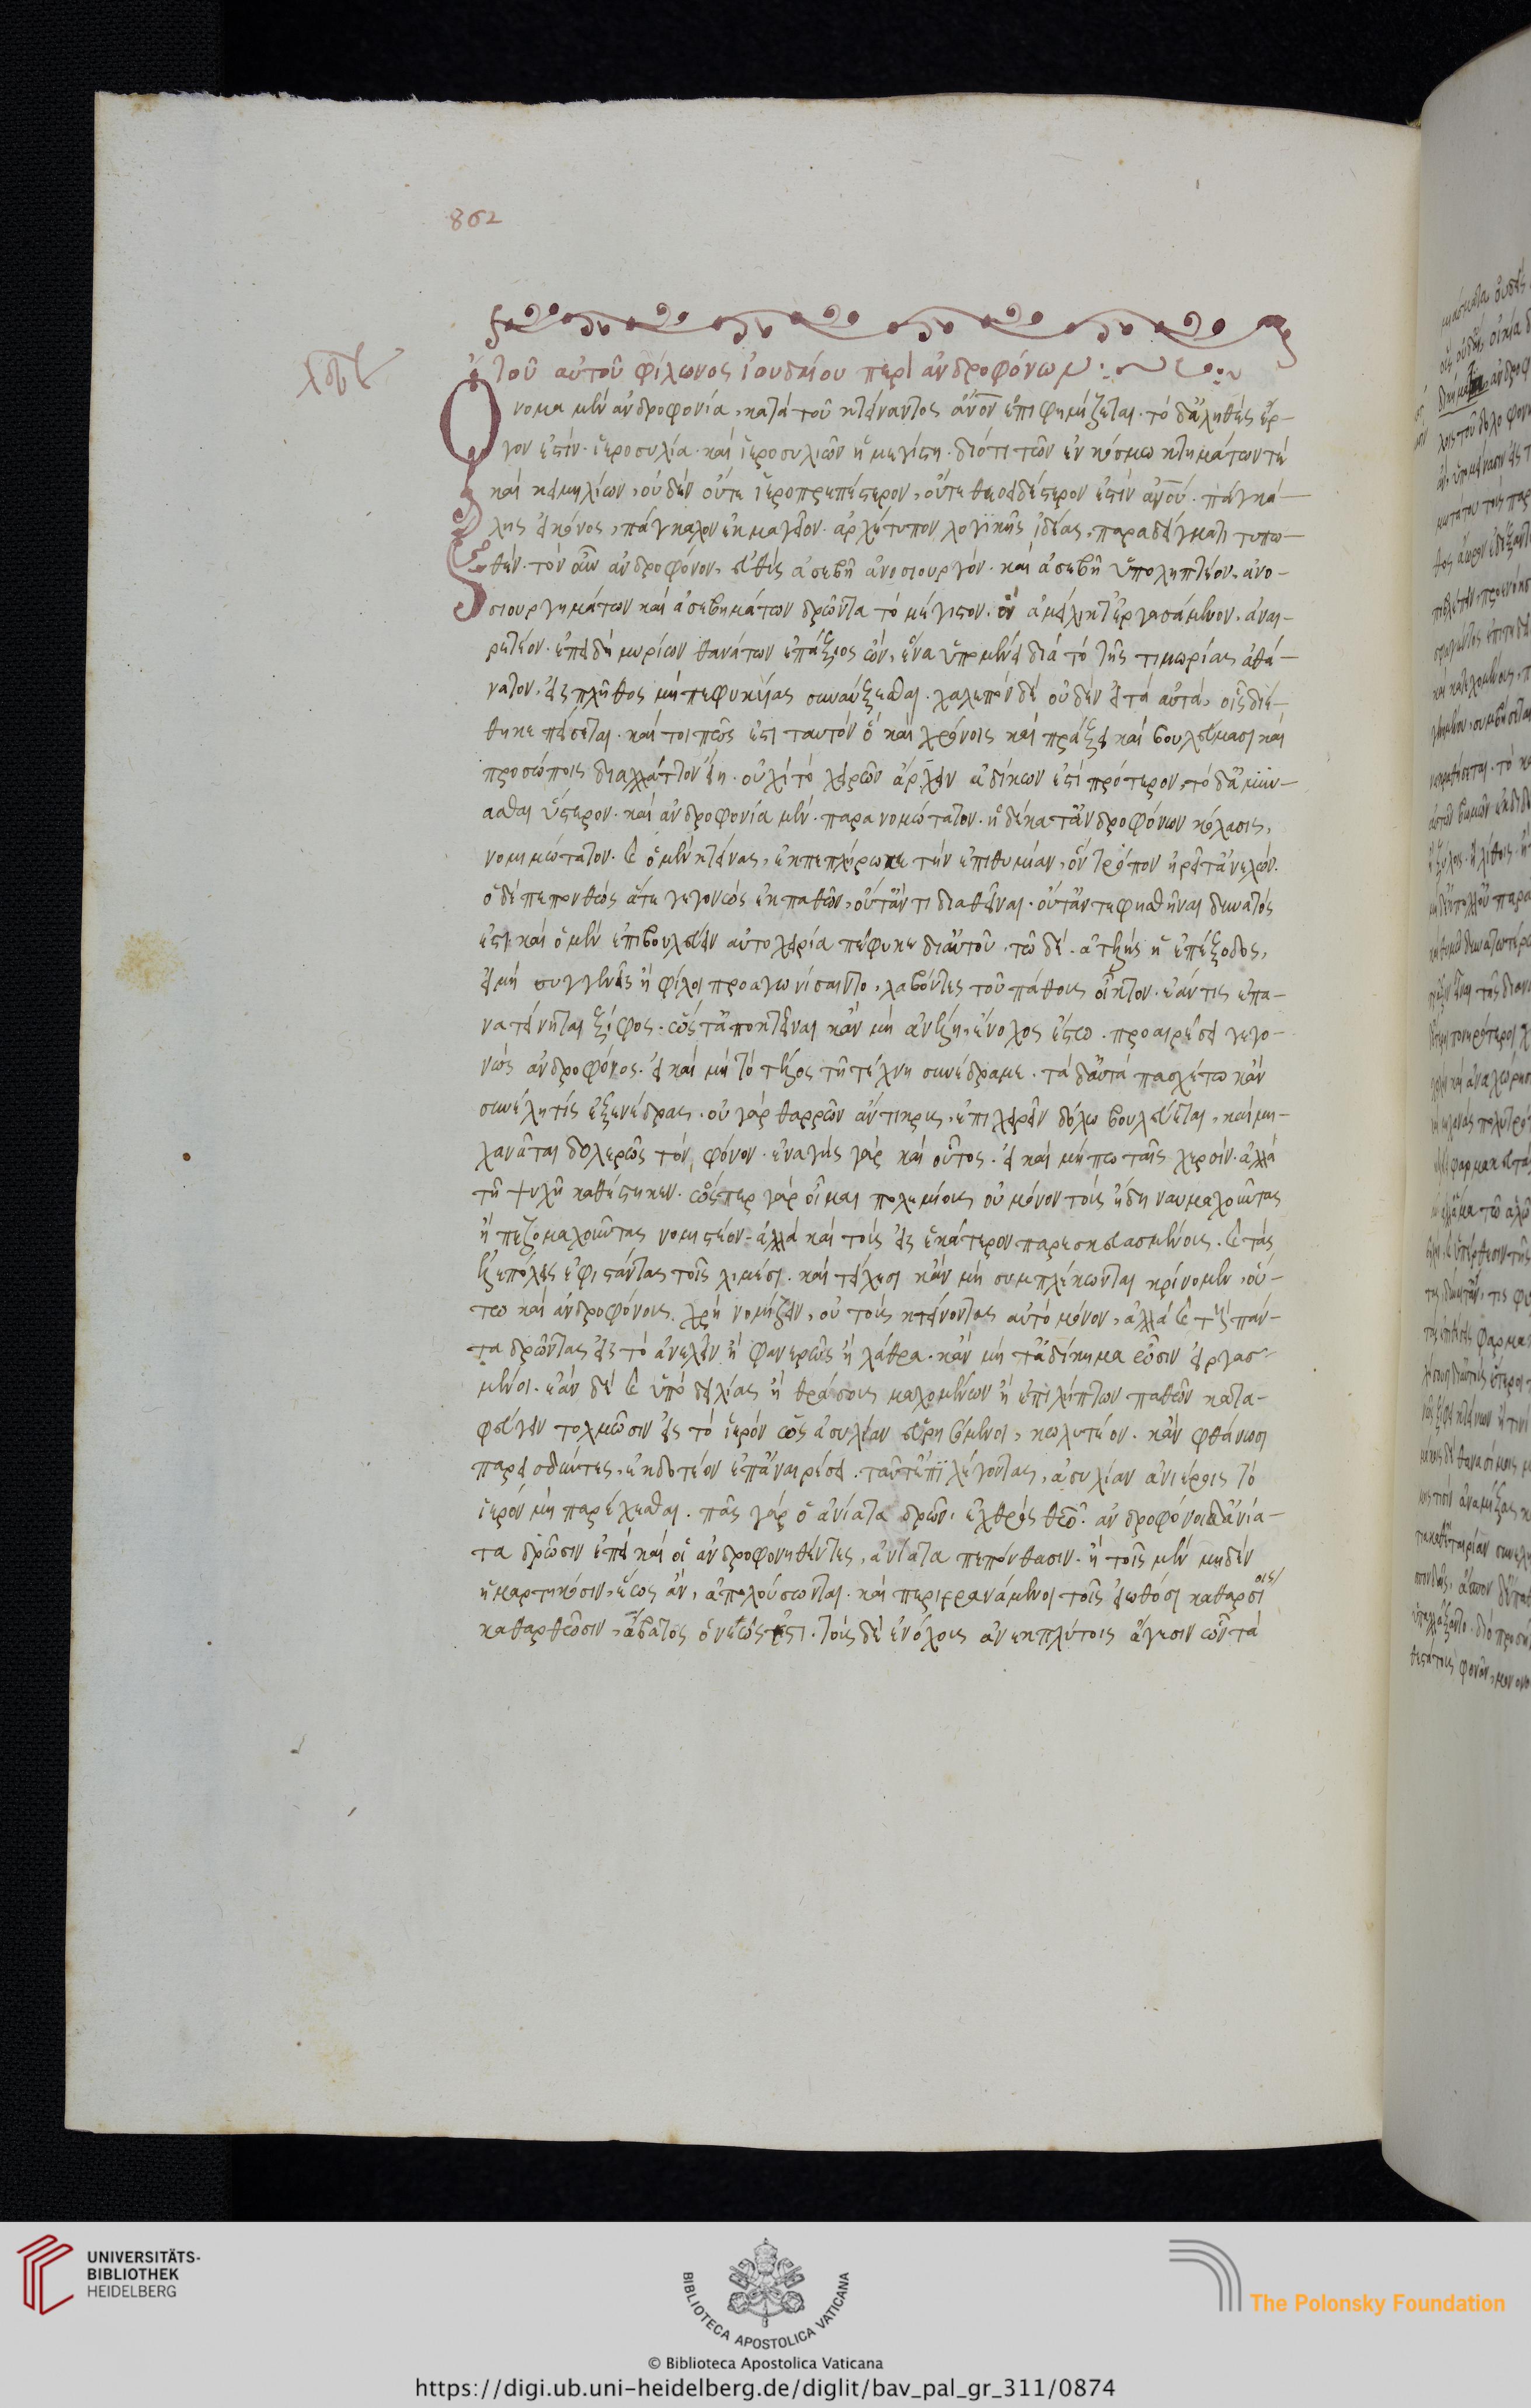 862
τοῦ αὐτοῦ φίλωνος ἰουδαίου περὶ ἀνδροφόνων
Ὄνομα μὲν ἀνδροφονία, κατὰ τοῦ κτείναντος ἄνον ἐπιφημίζεται· τὸ δ' ἀληθὲς ἔρ-
γον ἐστὶν ἱεροσυλία· καὶ ἱεροσυλιῶν ἡ μεγίστη· διότι τῶν ἐν κόσμω κτημάτων τὲ
καὶ κειμηλίων, οὐδὲν οὔτε ἱεροπρεπέστερον, οὔτε θεοειδέστερον ἐστὶν ἀνοῦ· πάγκά-
λης εἰκόνος, πάγκαλον ἐκμαγεῖον· ἀρχέτυπον λογικῆς ἰδέας, παραδείγματι τυπω-
θέν· τὸν οὖν ἀνδροφόνον, εὐθὺς ἀσεβῆ ἀνοσιουργόν· καὶ ἀσεβῆ ὑποληπτέον, ἀνο-
σιουργημάτων καὶ ἀσεβημάτων δρῶντα τὸ μέγιστον· ὃν ἀμείλικτ' ἐργασάμενον, ἀναι-
ρετέον· ἐπειδὴ μυρίων θανάτων ἐπάξιος ὤν, ἕνα ὑπομένει διὰ τὸ τῆς τιμωρίας ἀθά-
νατον, εἰς πλῆθος μὴ πεφυκυίας συναύξεσθαι· χαλεπὸν δὲ οὐδὲν εἰ τὰ αὐτὰ, οἷς διέ-
θηκε πείσεται· καί τοι πῶς ἐστι ταυτὸν ὃ καὶ χρόνοις καὶ πράξει καὶ βουλεύμασι καὶ
προσώποις διαλλάττον ἔη· οὐχὶ τὸ χειρῶν ἄρχειν ἀδίκων ἐστὶ πρότερον, τὸ δ' ἀμύν-
ασθαι ὕστερον· καὶ ἀνδροφονία μὲν παρανομώτατον· ἡ δὲ κατ' ἀνδροφόνων κόλασις,
νομιμώτατον· καὶ ὁ μὲν κτείνας, ἐκπεπλήρωκε τὴν ἐπιθυμίαν, ὃν τρόπον ἡρεῖτ' ἀνελών.
ὁ δὲ πεπονθὼς ἅτε γεγονὼς ἐκπαθῶν, οὔτ' ἄν τι διαθεῖναι· οὔτ' ἀντεφησθῆναι δυνατός
ἐστι καὶ ὁ μὲν ἐπιβουλεύειν αὐτοχειρία πέφυκε δι' αὐτοῦ· τῷ δὲ ἀτελὴς ἡ ἐπέξοδος,
εἰ μὴ συγγενεῖς ἢ φίλοι προαγωνίσαιντο, λαβόντες τοῦ πάθους οἶκτον· ἐάν τις ἐπα-
νατείνηται ξίφος· ὡς τ' ἀποκτεῖναι κἂν μὴ ἀνέλη, ἔνοχος ἔστω· προαιρέσει γεγο-
νὼς ἀνδροφόνος· εἰ καὶ μὴ τὸ τέλος τῆ τέχνη συνέδραμε· τὰ δ' αὐτὰ πασχέτω κἂν
συνέλη τίς ἐξ ἐνέδρας· οὐ γὰρ θαρρῶν ἄντικρυς, ἐπιχειρεῖν δόλω βουλεύεται, καὶ μη-
χανᾶται δολερῶς τὸν φόνον· ἐναγὴς γὰρ καὶ οὗτος· εἰ καὶ μήπω ταῖς χερσίν· ἀλλὰ
τῆ ψυχῆ καθέστηκεν· ὥσπερ γὰρ οἶμαι πολεμίους οὐ μόνον τοὺς ἤδη ναυμαχοῦντας
ἢ πεζομαχοῦντας νομιστέον· ἀλλὰ καὶ τοὺς εἰς ἑκάτερον παρεσκευασμένους· καὶ τὰς
ἑλεπόλεις ἐφιστάντας τοῖς λιμέσι· καὶ τείχεσι κἂν μὴ συμπλέκωνται κρίνομεν, οὕ-
τω καὶ ἀνδροφόνους χρὴ νομίζειν, οὐ τοὺς κτείνοντας αὐτὸ μόνον, ἀλλὰ καὶ τοὺς πάν-
τα δρῶντας εἰς τὸ ἀνελεῖν ἢ φανερῶς ἢ λάθρα· κἂν μὴ τ' ἀδίκημα ὦσιν εἰργασ-
μένοι· ἐὰν δὲ καὶ ὑπὸ δειλίας ἢ θράσους μαχομένων ἢ ἐπιλήπτων παθῶν κατα-
φεύγειν τολμῶσιν εἰς τὸ ἱερὸν ὡς ἀσυλίαν εὑρησόμενοι, κωλυτέον· κἂν φθάνωσι
παρεισδύντες, ἐκδοτέον ἐπ' ἀναιρέσει· ταῦτ' ἐπιλέγοντας, ἀσυλίαν ἀνιέροις τὸ
ἱερὸν μὴ παρέχεσθαι· πᾶς γὰρ ὁ ἀνίατα δρῶν, ἐχθρὸς θεῶ· ἀνδροφόνοι δ' ἀνία-
τα δρῶσιν ἐπεὶ καὶ οἱ ἀνδροφονηθέντες, ἀνίατα πεπόνθασιν· ἢ τοῖς μὲν μηδὲν
ἡμαρτηκόσιν, ἕως ἂν, ἀπολούσωνται· καὶ περιρρανάμενοι τοῖς εἰωθόσι καθαρσίοις
καθαρθῶσιν, ἄβατος ὁ νεώς ἐστι· τοὺς δὲ ἐνόχους ἀνεκπλύτοις ἄγεσιν ὧν τὰ
UNIVERSITÄTS-
BIBLIOTHEK
HEIDELBERG
BIBLIOTECA APOSTOLICA VATICANA
The Polonsky Foundation
© Biblioteca Apostolica Vaticana
https://digi.ub.uni-heidelberg.de/diglit/bav_pal_gr_311/0874